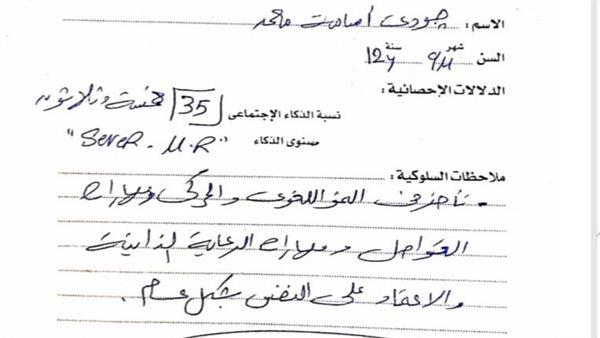 الاسم : جودى أسامة محمد
السن شهر 9M سنة 12y
الدلالات الإحصائية:
نسبة الذكاء الإجتماعى 35 خمسة وثلاثون
مستوى الذكاء "Sever - M.R"
ملاحظات السلوكية:
- تأخر فى النمو اللغوى والحركى ومهارات
التواصل ومهارات الرعاية الذاتية
والاعتماد على النفس بشكل عام .